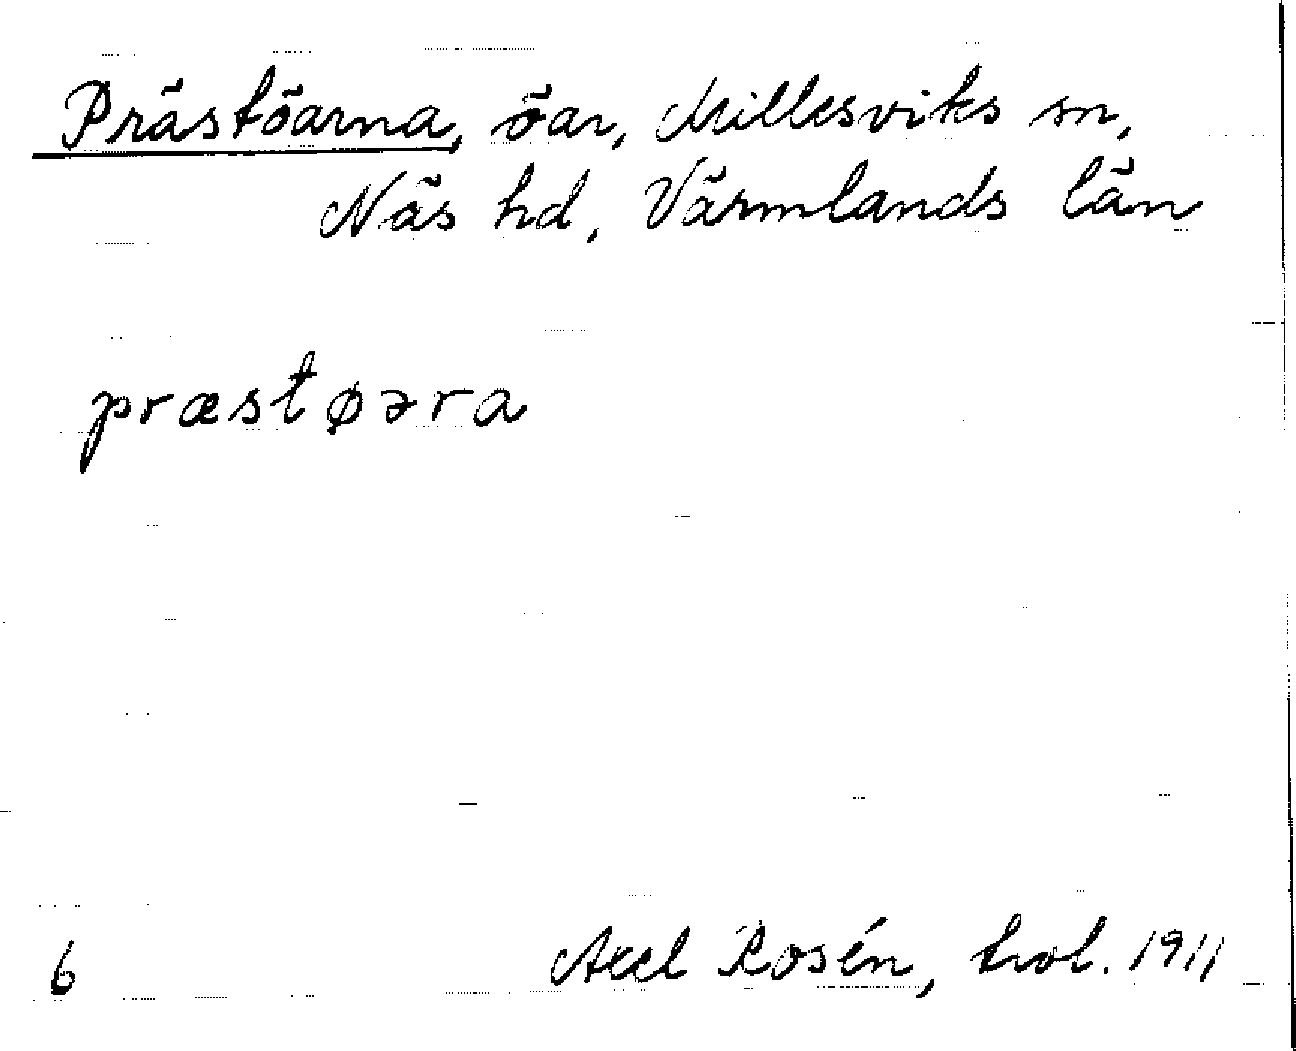 Prästöarna, öar, Millesviks sn,
Näs hd, Värmlands län
præstøəra
6 Axel Rosén, trol. 1911